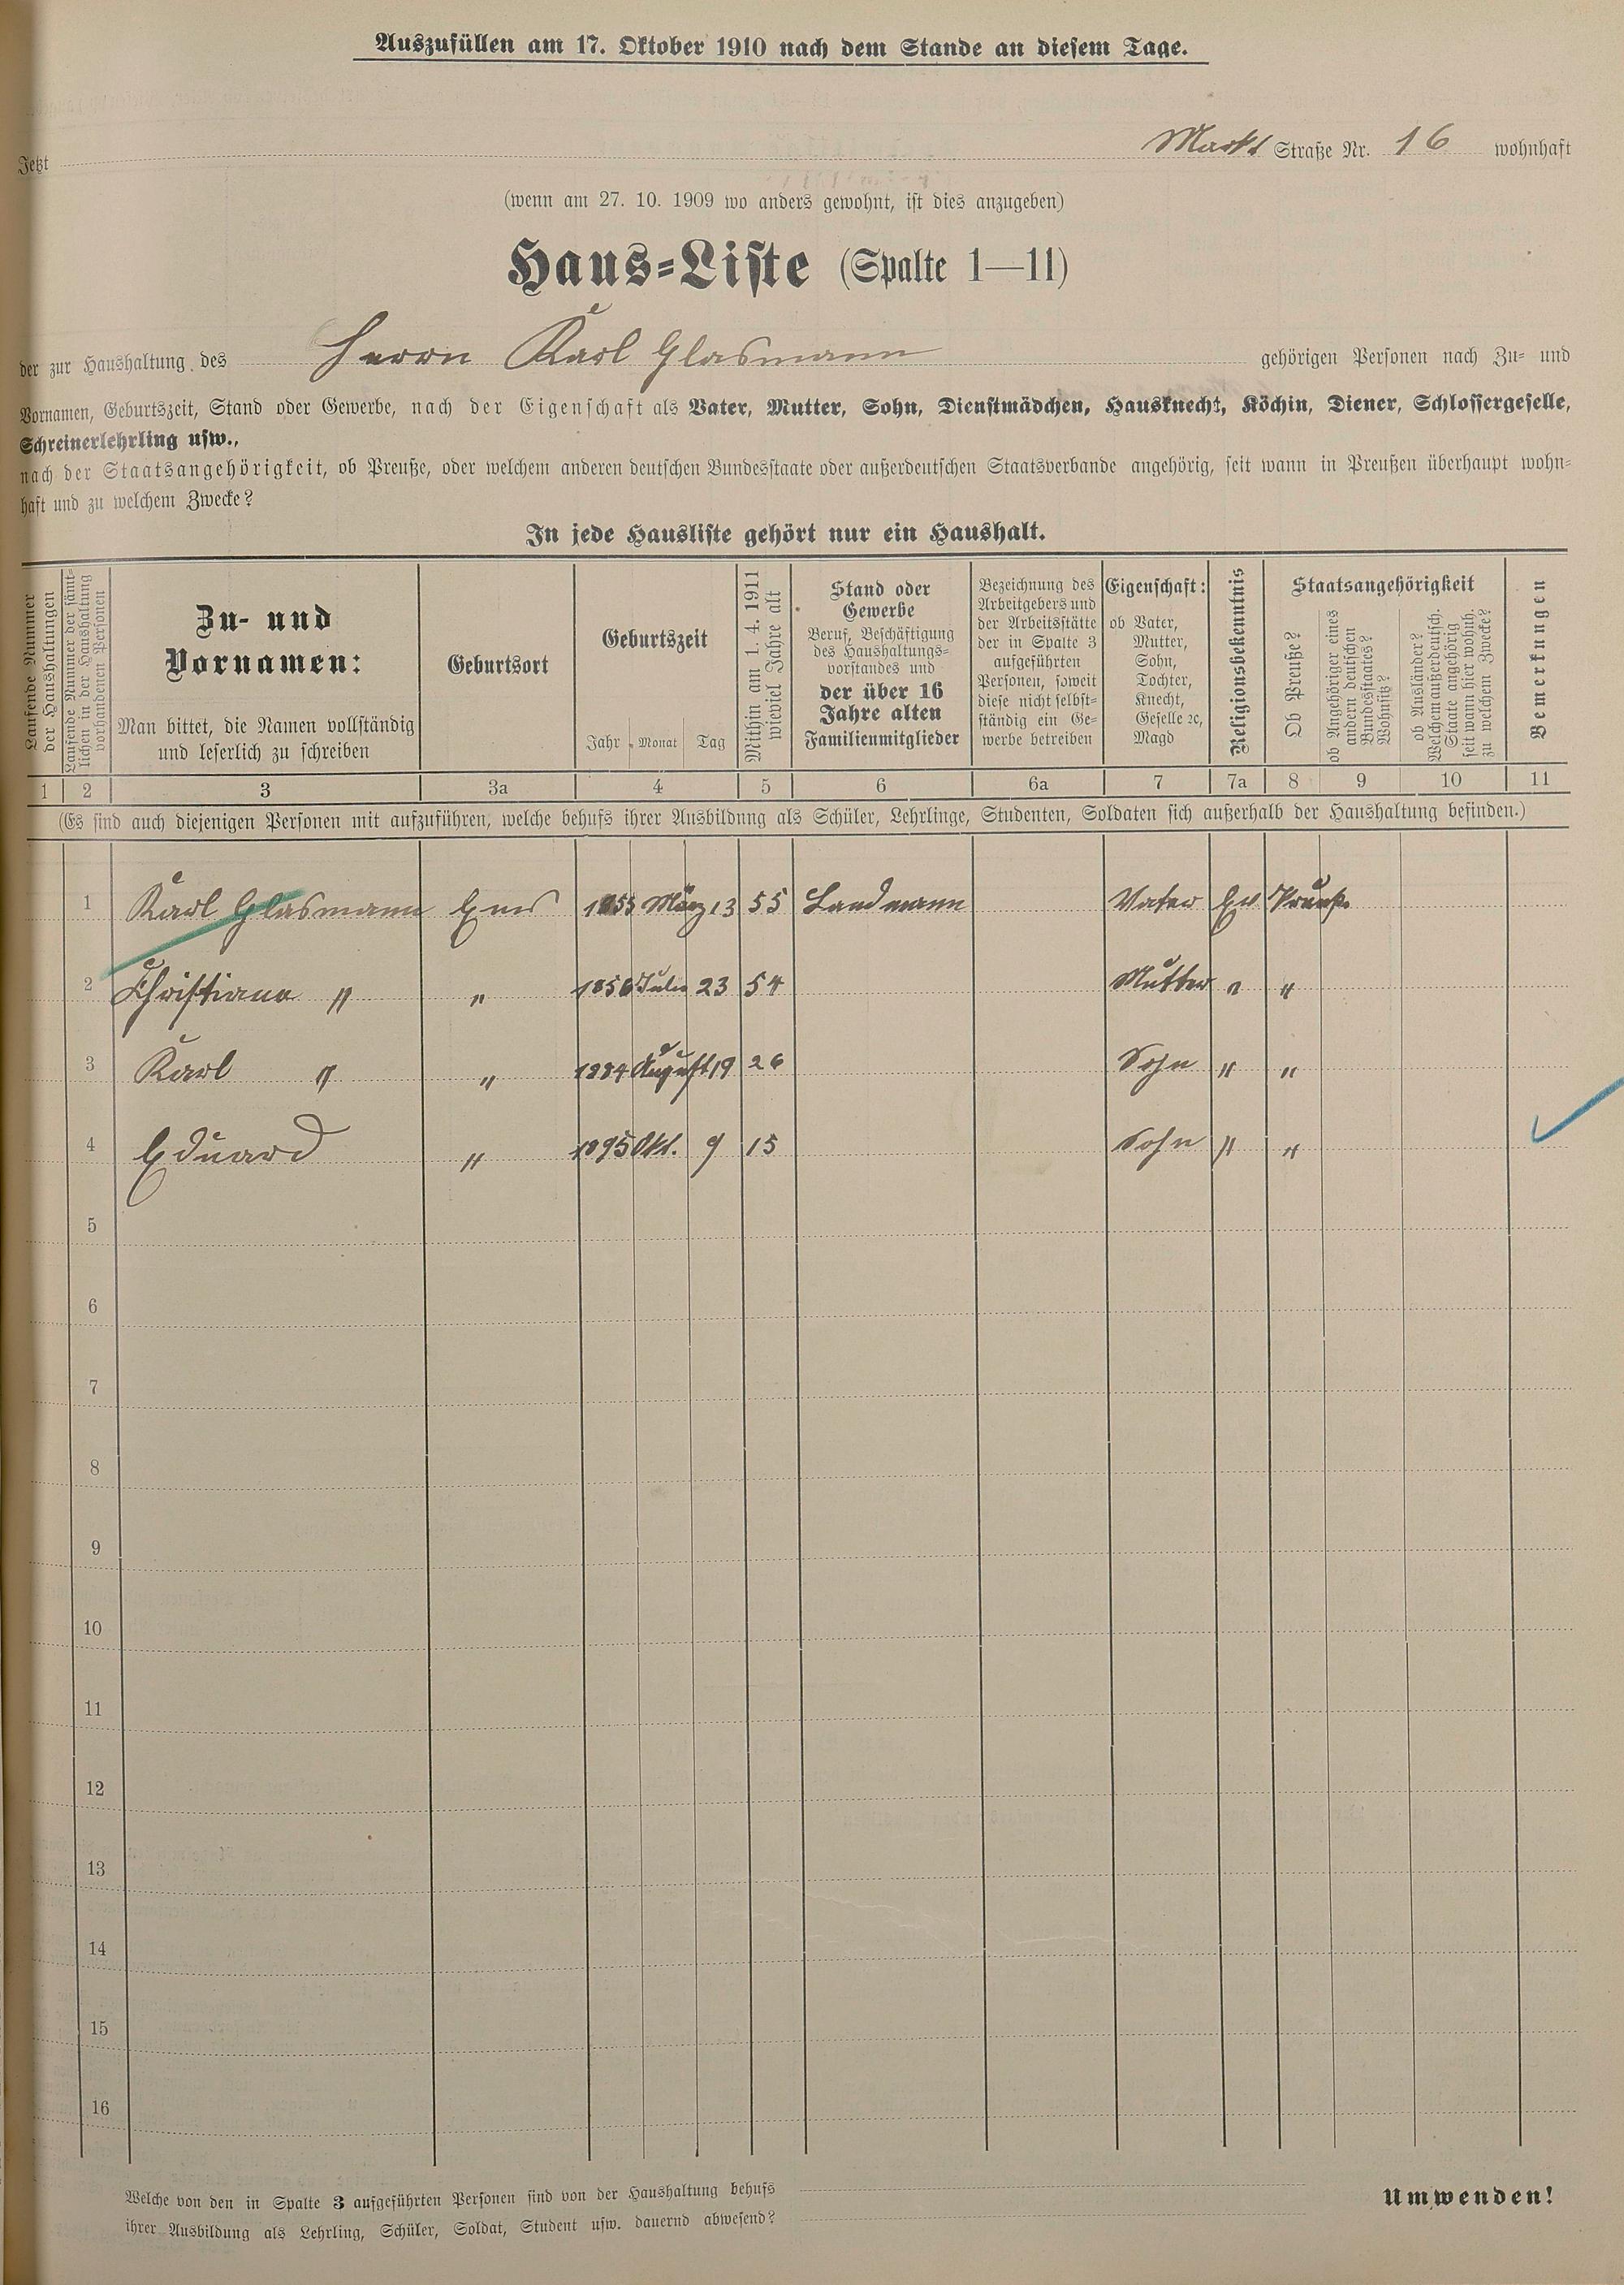 Auszufüllen am 17. Oktober 1910 nach dem Stande an diesem Tage.
Jetzt Markt Straße Nr. 16 wohnhaft
(wenn am 27. 10. 1909 wo anders gewohnt, ist dies anzugeben)
Haus-Liste (Spalte 1—11)
der zur Haushaltung des Herrn Karl Glasmann gehörigen Personen nach Zu- und
Vornamen, Geburtszeit, Stand oder Gewerbe, nach der Eigenschaft als Vater, Mutter, Sohn, Dienstmädchen, Hausknecht, Köchin, Diener, Schlossergeselle,
Schreinerlehrling usw.,
nach der Staatsangehörigkeit, ob Preuße, oder welchem anderen deutschen Bundesstaate oder außerdeutschen Staatsverbande angehörig, seit wann in Preußen überhaupt wohn-
haft und zu welchem Zwecke?
In jede Hausliste gehört nur ein Haushalt.
Laufende Nummer
der Haushaltungen
Laufende Nummer der sämt-
lichen in der Haushaltung
vorhandenen Personen
Zu- und
Vornamen:
Man bittet, die Namen vollständig
und leserlich zu schreiben
Geburtsort
Geburtszeit
Jahr Monat Tag
Mithin am 1. 4. 1911
wieviel Jahre alt
Stand oder
Gewerbe
Beruf, Beschäftigung
des Haushaltungs-
vorstandes und
der über 16
Jahre alten
Familienmitglieder
Bezeichnung des
Arbeitgebers und
der Arbeitsstätte
der in Spalte 3
aufgeführten
Personen, soweit
diese nicht selbst-
ständig ein Ge-
werbe betreiben
Eigenschaft:
ob Vater,
Mutter,
Sohn,
Tochter,
Knecht,
Geselle ꝛc,
Magd
Religionsbekenntnis
Staatsangehörigkeit
Ob Preuße?
ob Angehöriger eines
andern deutschen
Bundesstaates?
Wohnsitz?
ob Ausländer?
Welchem außerdeutsch.
Staate angehörig
seit wann hier wohnh.
zu welchem Zwecke?
Bemerkungen
1 2 3 3a 4 5 6 6a 7 7a 8 9 10 11
(Es sind auch diejenigen Personen mit aufzuführen, welche behufs ihrer Ausbildung als Schüler, Lehrlinge, Studenten, Soldaten sich außerhalb der Haushaltung befinden.)
1 Karl Glasmann Ems 1855 März 13 55 Landmann Vater Ev Preuße
2 Christiane " " 1856 Julie 23 54 Mutter " "
3 Karl " " 1884 August 19 26 Sohn " "
4 Eduard " 1895 Okt. 9 15 Sohn " "
5
6
7
8
9
10
11
12
13
14
15
16
Welche von den in Spalte 3 aufgeführten Personen sind von der Haushaltung behufs
ihrer Ausbildung als Lehrling, Schüler, Soldat, Student usw. dauernd abwesend?
Umwenden!